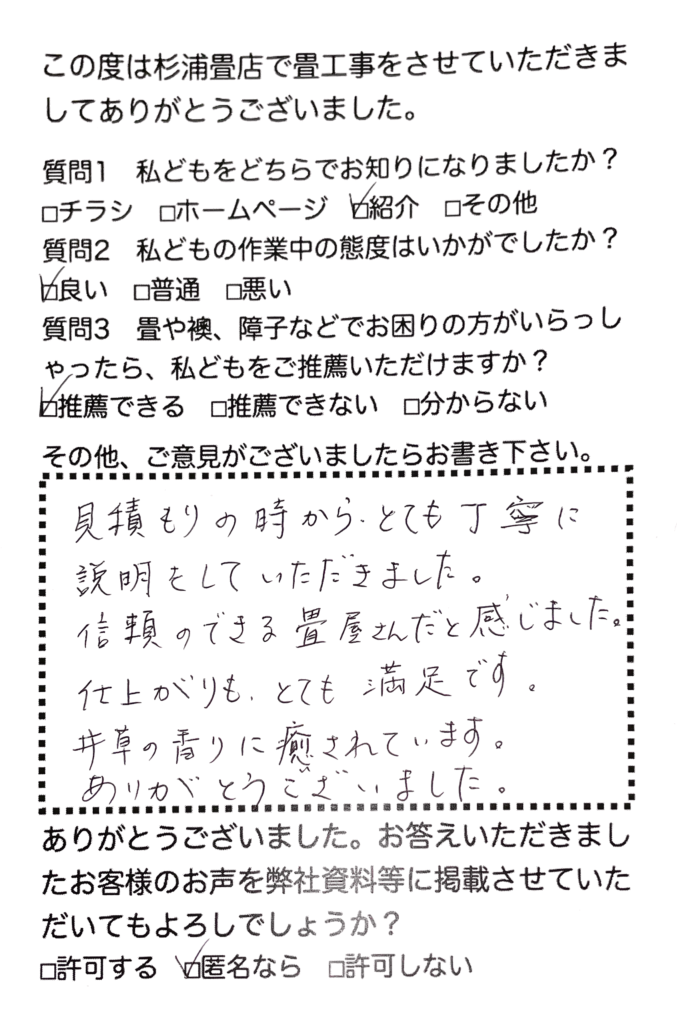 この度は杉浦畳店で畳工事をさせていただきま
してありがとうございました。
質問1　私どもをどちらでお知りになりましたか？
□チラシ　□ホームページ　☑紹介　□その他
質問2　私どもの作業中の態度はいかがでしたか？
☑良い　□普通　□悪い
質問3　畳や襖、障子などでお困りの方がいらっし
ゃったら、私どもをご推薦いただけますか？
☑推薦できる　□推薦できない　□分からない
その他、ご意見がございましたらお書き下さい。
見積もりの時から、とても丁寧に
説明をしていただきました。
信頼のできる畳屋さんだと感じました。
仕上がりも、とても満足です。
井草の香りに癒されています。
ありがとうございました。
ありがとうございました。お答えいただきまし
たお客様のお声を弊社資料等に掲載させていた
だいてもよろしでしょうか？
□許可する　☑匿名なら　□許可しない